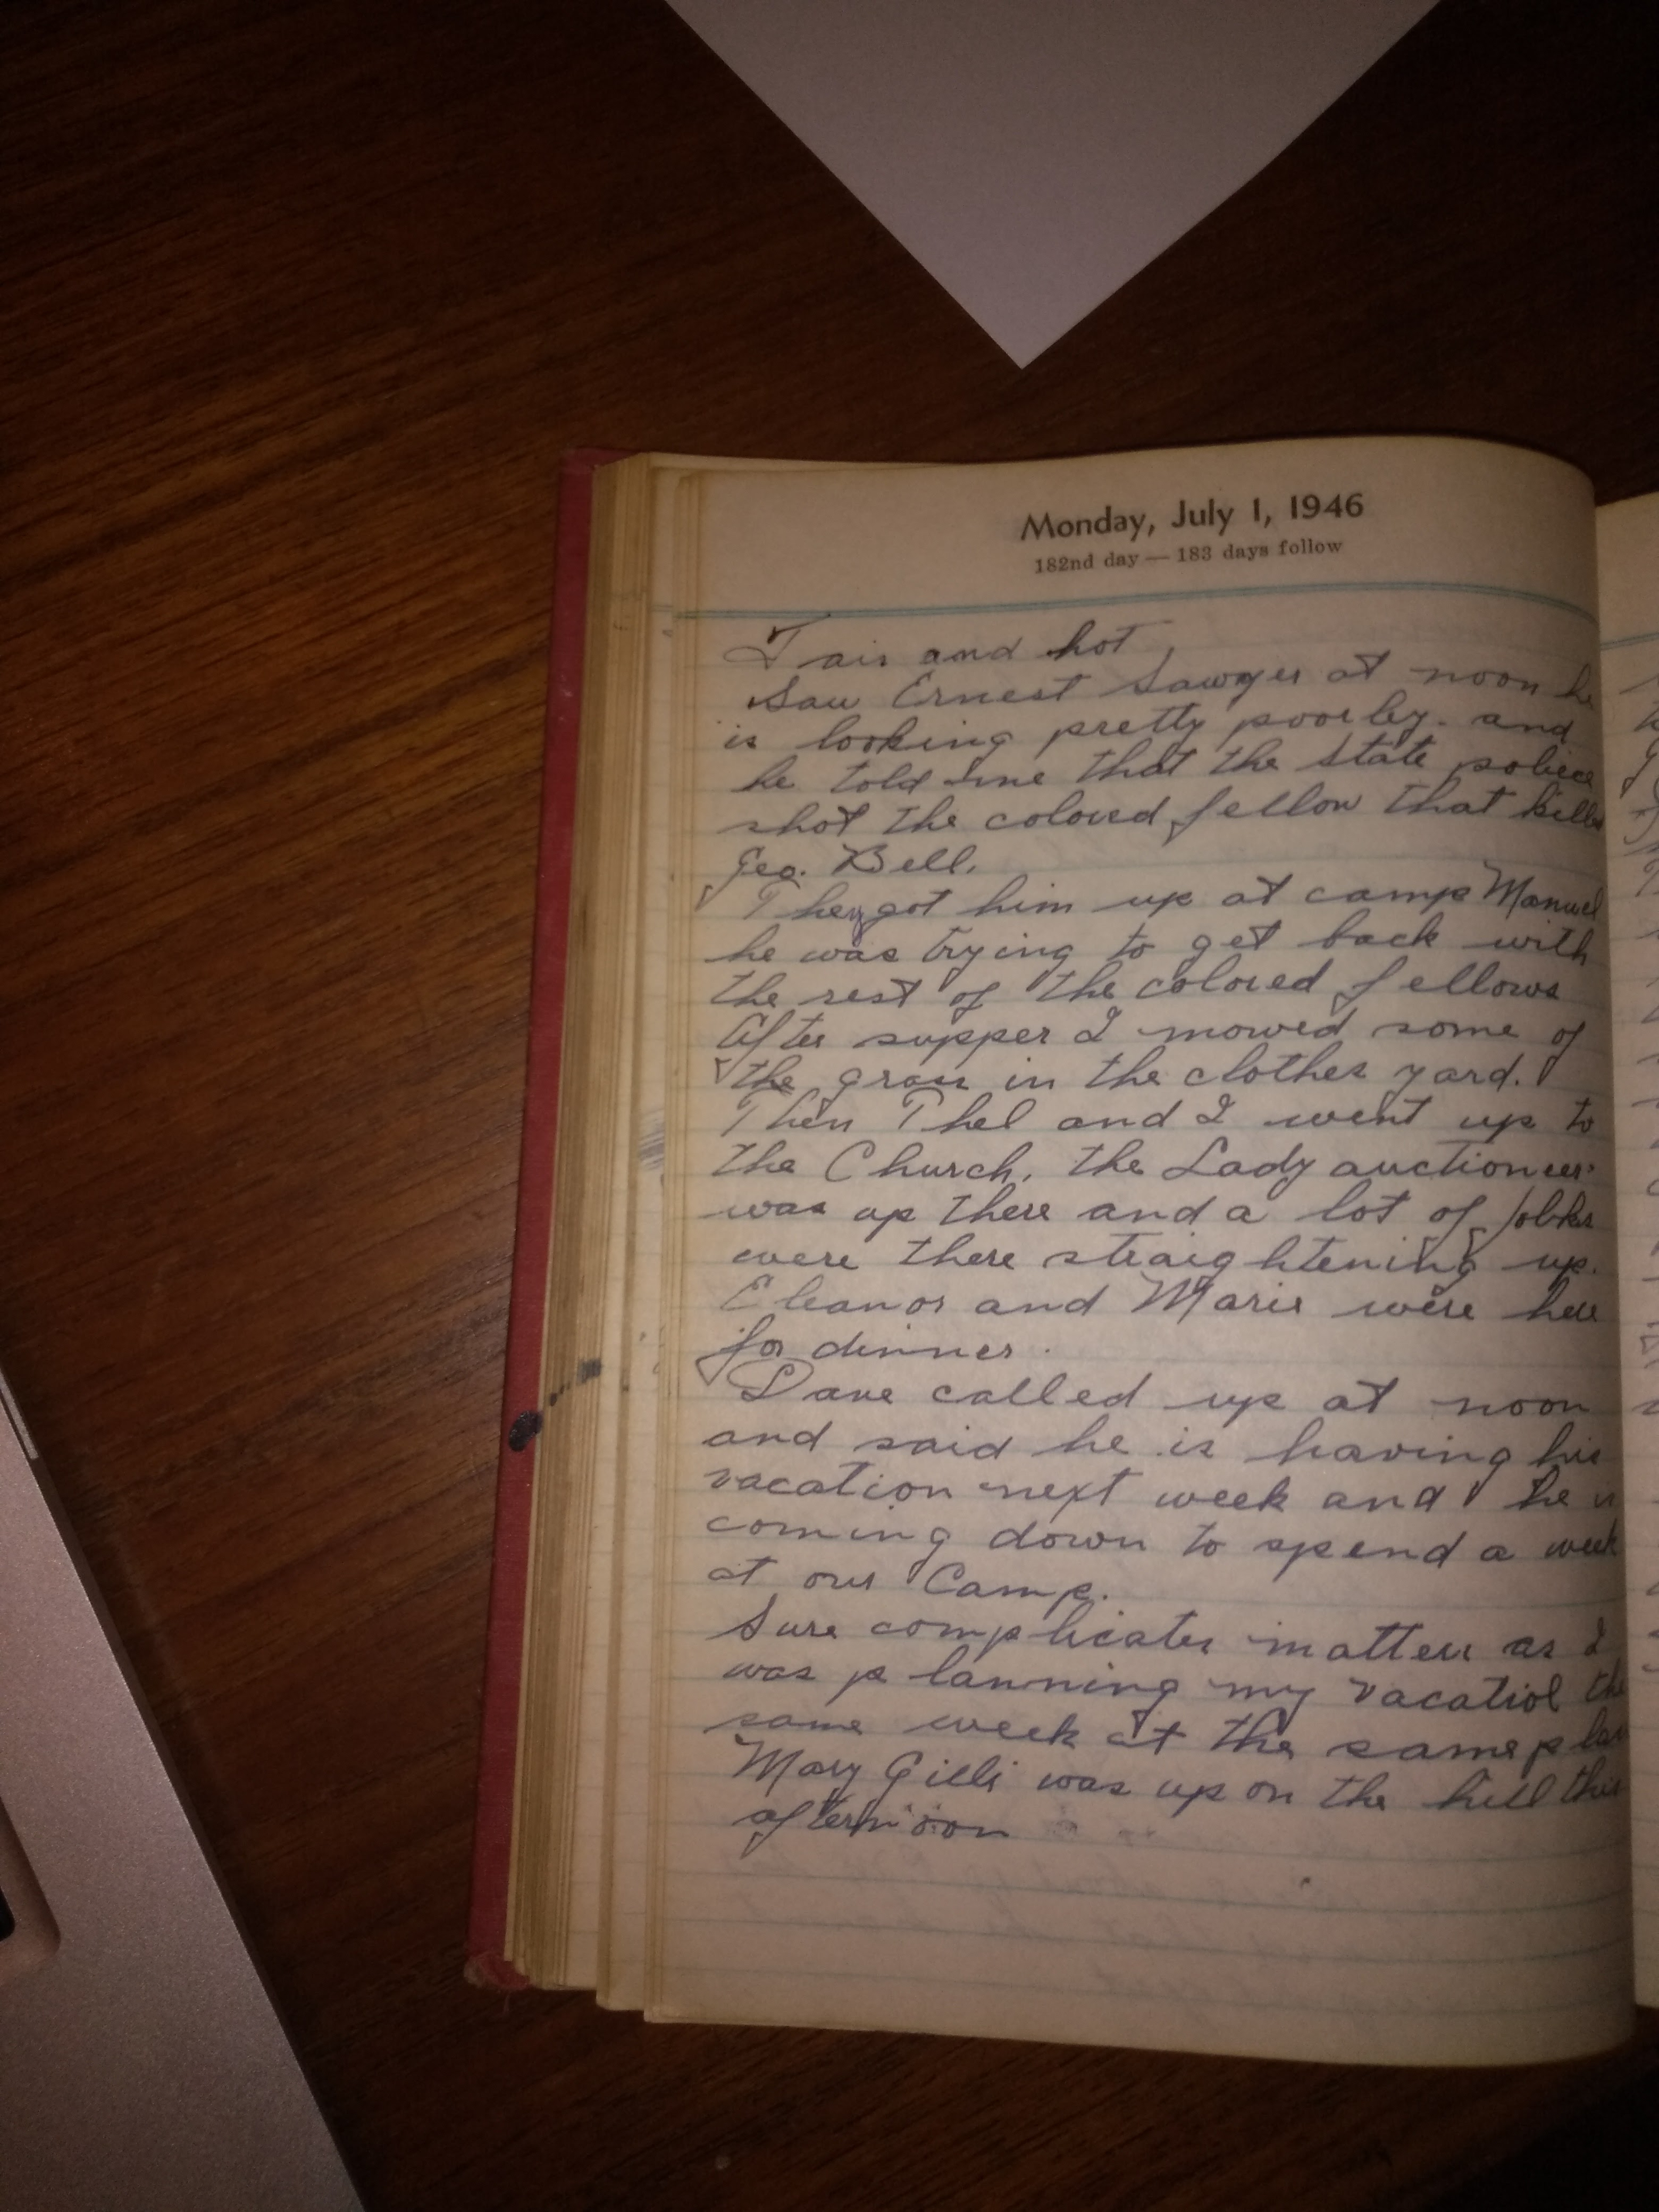 Monday, July 1, 1946
182nd day — 183 days follow
Fair and hot
Saw Ernest Sawyer at noon he
is looking pretty poorley. and
he told me that the State police
shot the colored fellow that killed
Geo. Bell.
They got him up at camp Manuel
he was trying to get back with
the rest of the colored fellows
After supper I mowed some of
the grass in the clothes yard.
Then Thel and I went up to
the Church, the Lady auctioneer
was up there and a lot of folks
were there straightening up.
Eleanor and Marie were here
for dinner.
Dave called up at noon
and said he is having his
vacation next week and he is
coming down to spend a week
at our Camp.
Sure complicates matters as I
was planning my vacatiol the
same week at the same
Mary Gilli was up on the hill this
afternoon